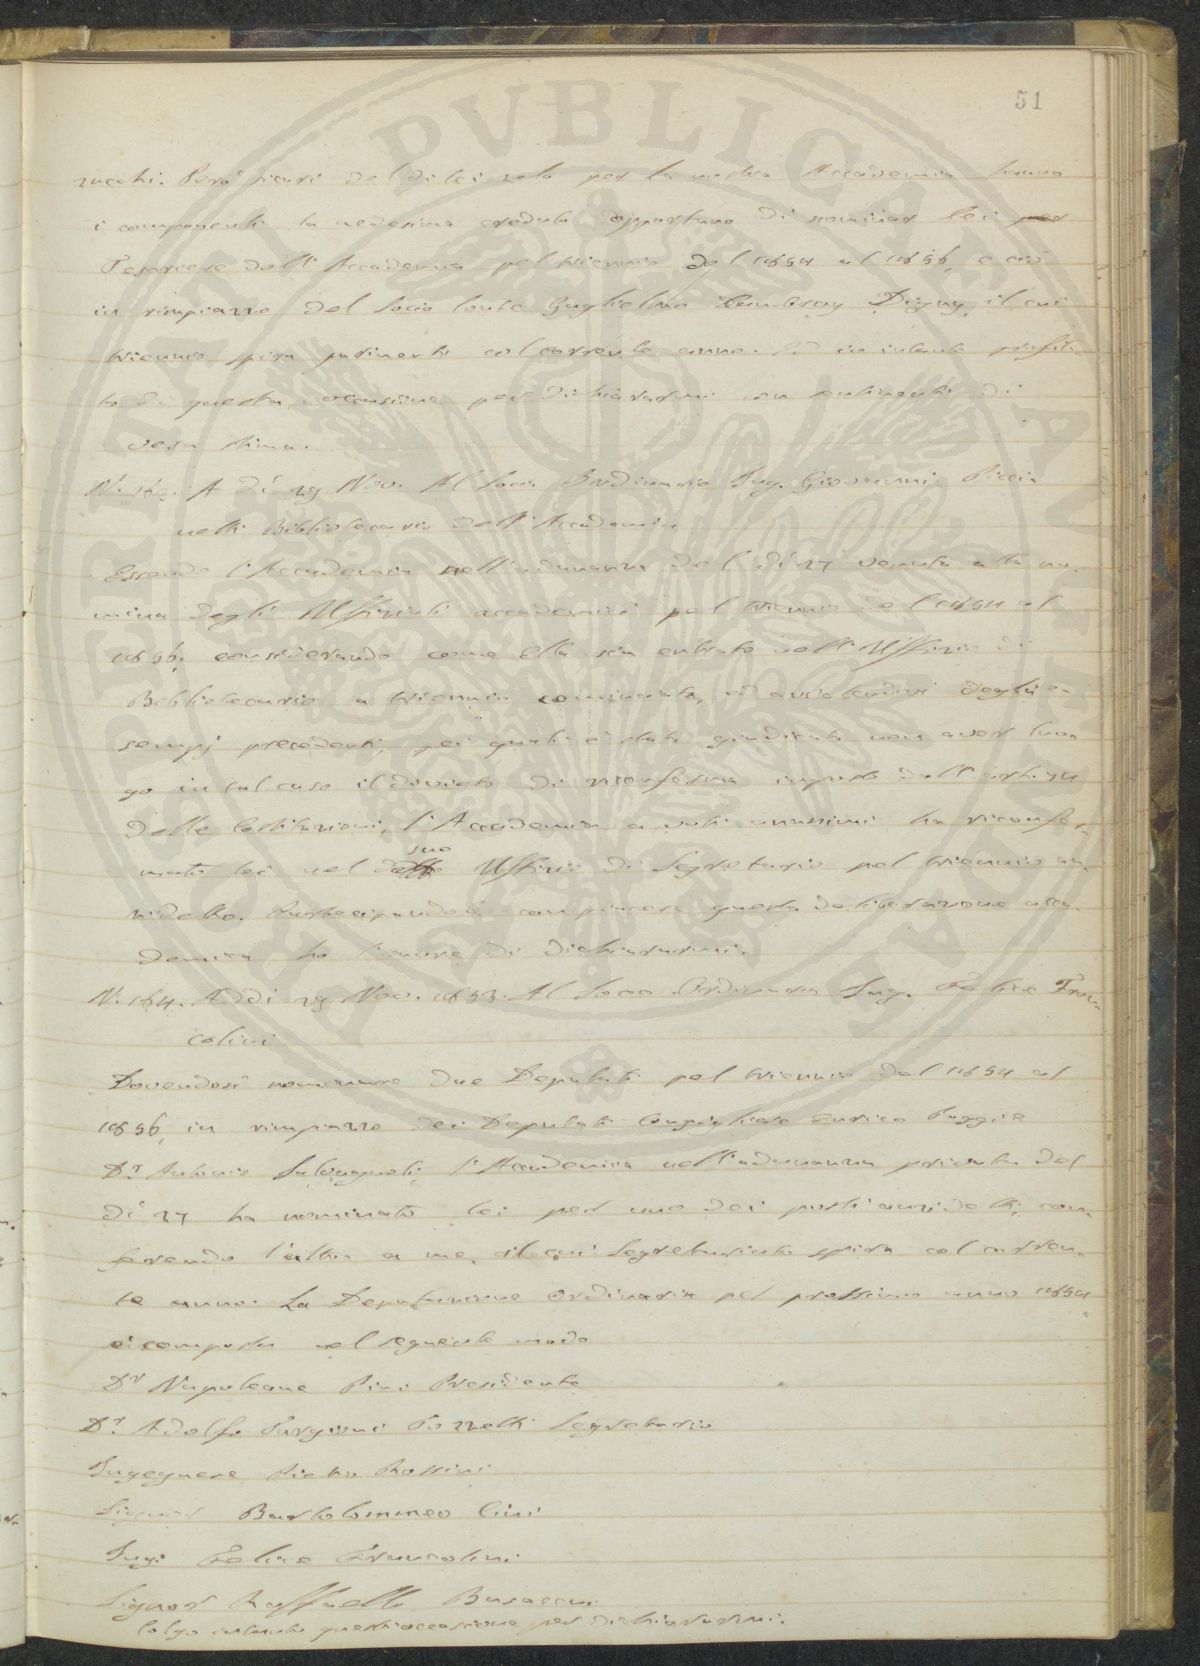 51
zucchi. Però sicuri del di lei zelo per la nostra Accademia hanno
i componenti la medesima creduto opportuno di nominar lei per
Tesoriere dell'Accademia pel triennio dal 1854 al 1856, e ciò
in rimpiazzo del Socio Conte Guglielmo Cambray Digny, il cui
triennio spira parimenti col corrente anno. Ed io intanto profit-
to di questa occasione per dichiararmi con sentimenti di
vera stima.
A dì 29 Nov. Al Socio Ordinario Ing. Giovanni Piccia
nelli Bibliotecario dell'Accademia
Essendo l'Accademia nell'adunanza del dì 27 venuta alla no-
mina degli Uffiziali accademici pel triennio dal 1854 al
1856, considerando come Ella sia entrato nell'Uffizio di
Bibliotecario a triennio cominciato, ed avvalendosi degli e-
sempj precedenti, pei quali è stato giudicato non aver luo-
go in tal caso il divieto di riconferma imposto dall'art.
delle Costituzioni, l'Accademia a voti unanimi ha riconfer-
mato lei nel suo Uffizio di Segretario pel triennio an-
zidetto. Partecipandole con piacere questa deliberazione acca-
demica ho l'onore di dichiararmi.
N. 164. Addì 29 Nov. 1853. Al Socio Ordinario Ing. Felice Fran-
colini
Dovendosi nominare due Deputati pel triennio dal 1854 al
1856, in rimpiazzo dei Deputati Consigliere Enrico Poggi e
Dr. Antonio Salvagnoli, l'Accademia nell'adunanza privata del
dì 27 ha nominato lei per uno dei posti anzidetti, con-
ferendo l'altro a me, il cui Segretariato spira col corren-
te anno. La Deputazione Ordinaria pel prossimo anno 1854
è composta nel seguente modo
Dr. Napoleone Pini Presidente
Dr. Adolfo Targioni Tozzetti Segretario
Ingegnere Pietro Rossini
Signor Bartolommeo Cini
Ing. Felice Francolini
Signor Raffaello Busacca
Colgo intanto quest'occasione per dichiararmi.